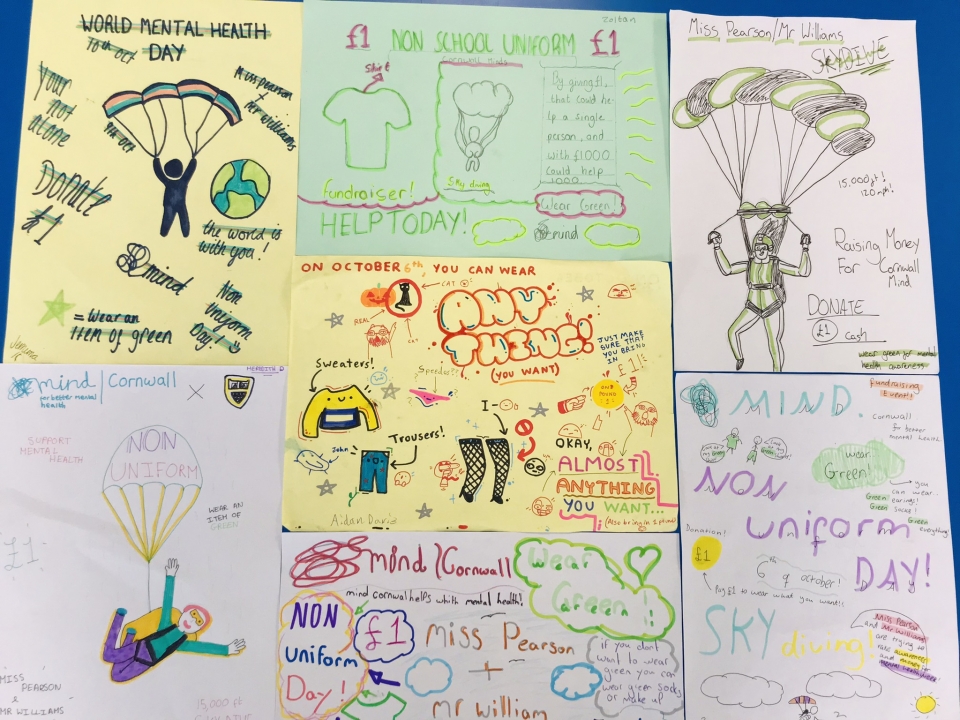 WORLD MENTAL HEALTH
DAY
10th oct
Your
not
alone
Miss pearson
+
Mr williams
9th oct
Donate
£1
the world is
with you!
mind
Non
Uniform
Day!
= Wear an
Item of green
Jemima
Zoltan
£1 NON SCHOOL UNIFORM £1
Cornwall Minds
Shirt
By giving £1,
that could he
lp a single
person, and
with £1000
could help
1000
Sky diving
Fundraiser!
Wear Green!
HELP TODAY!
mind
Miss Pearson/Mr Williams
SKYDIVE
15,000ft!
120mph!
Raising Money
For Cornwall
Mind
DONATE
£1 Cash
wear green for mental
health awareness
ON OCTOBER 6th, YOU CAN WEAR
CAT
REAL
CAT
ANY
THING!
(YOU WANT)
JUST MAKE
SURE THAT
YOU BRING
IN
£1!
Sweaters!
Speedos?!
ONE
POUND
I-
Trousers!
John
OKAY,
ALMOST..
ANYTHING
YOU WANT...
(Also bring in 1 pound)
Aidan David
mind | Cornwall
for better mental
health
X
MEREDITH D
SUPPORT
MENTAL
HEALTH
NON
UNIFORM
WEAR AN
ITEM OF
GREEN
£1
MISS
PEARSON
&
MR WILLIAMS
15,000 FT
mind | Cornwall
mind cornwall helps whith mental health!
Wear
Green!!
NON
Uniform
Day!
£1
Miss Pearson
+
Mr William
if you dont
want to wear
green you can
wear green socks
or make up
MIND.
Fundraising
Event!
cornwall
for better
mental health
wear
Green!
you
can wear..
Green earings!
Green socks!
Green everything!
NON
uniform
DAY!
Donation!
£1
6th of october!
Pay £1 to wear what you want!!
SKY
diving!
Miss Pearson
and
Mr Williams
are trying to
raise awareness
and money for
mental